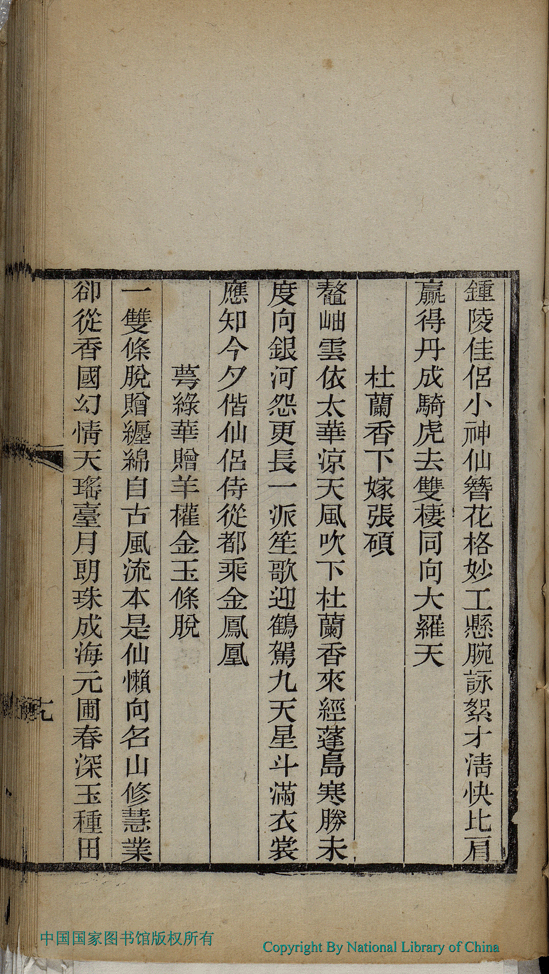 鍾陵佳侶小神仙簪花格妙工懸腕詠絮才淸快比肩
贏得丹成騎虎去雙棲同向大羅天
杜蘭香下嫁張碩
鼇岫雲依太華涼天風吹下杜蘭香來經蓬島寒勝未
度向銀河怨更長一派笙歌迎鶴駕九天星斗滿衣裳
應知今夕偕仙侶侍從都乘金鳳凰
萼綠華贈羊權金玉條脫
一雙條脫贈纏綿自古風流本是仙懶向名山修慧業
卻從香國幻情天瑤臺月朗珠成海元圃春深玉種田
七
中国国家图书馆版权所有
Copyright By National Library of China